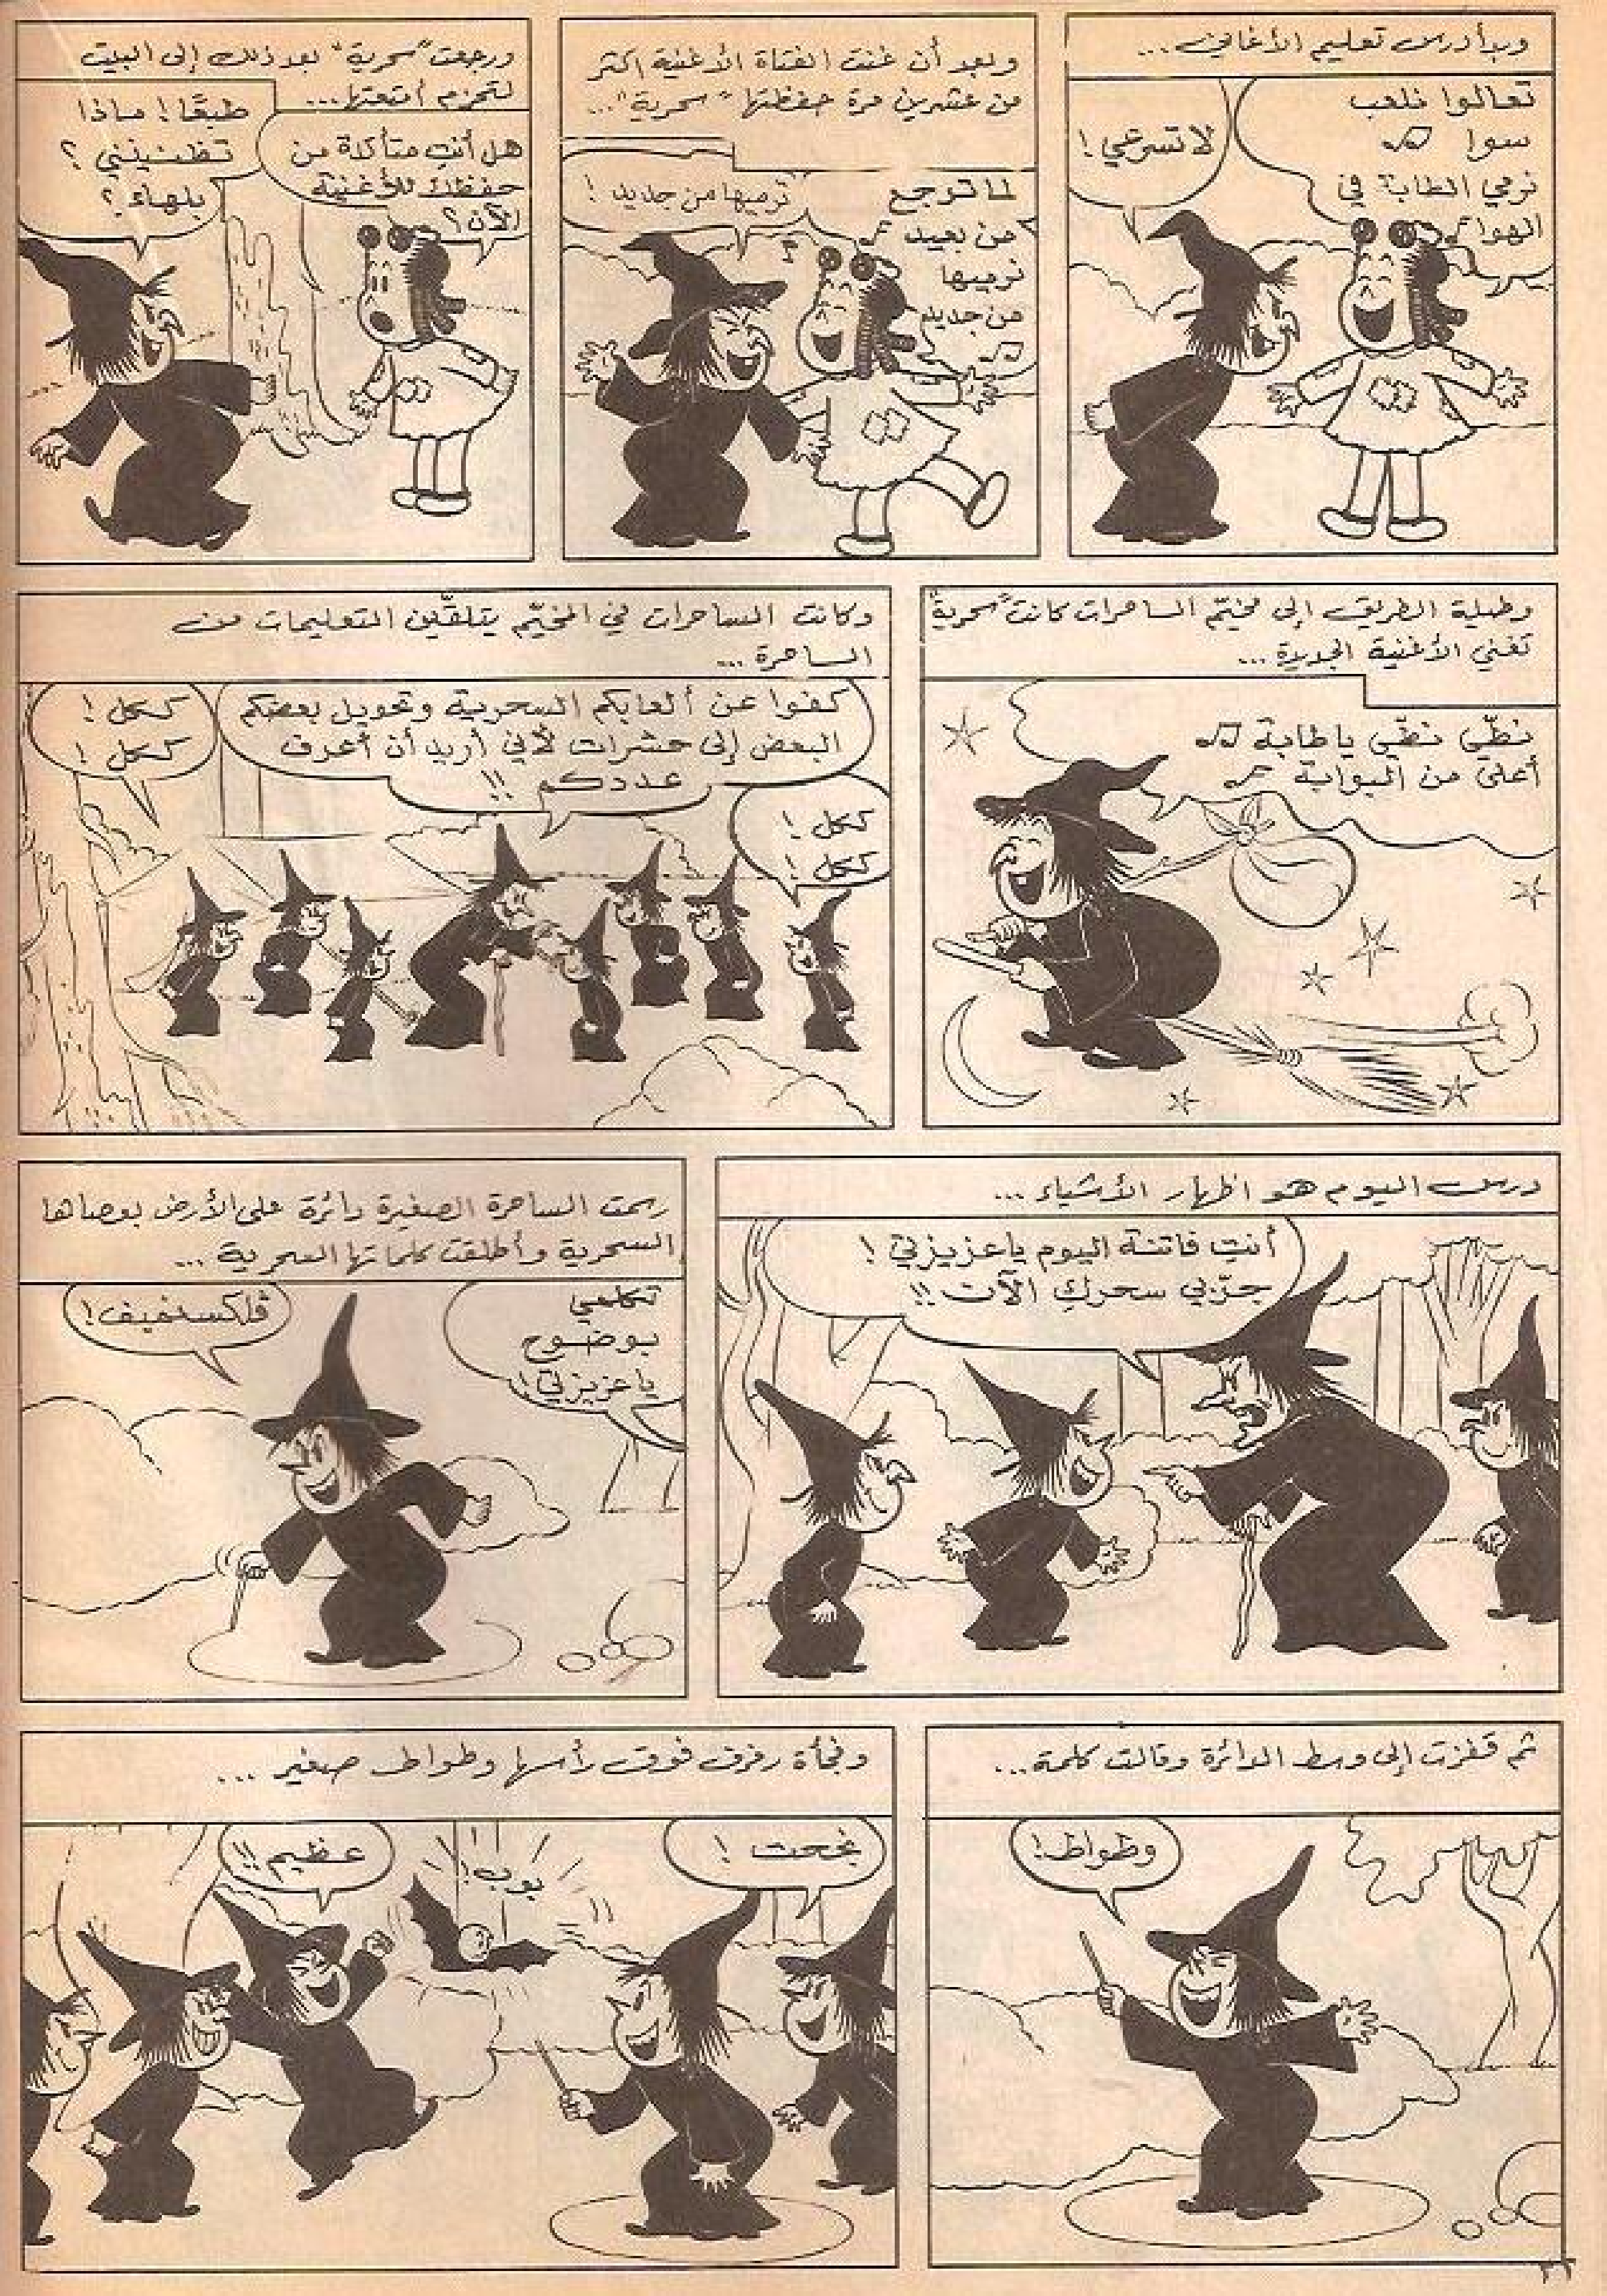 وبدأ درس تعليم الأغاني...
تعالوا نلعب
سوا
نرمي الطابة في
الهوا
لا تسرعي!
وبعد أن غنت الفتاة الأغنية اكثر
من عشرين مرة حفظتها "سحرية"...
لما ترجع
من بعيد
نرميها
من جديد
نرميها من جديد!
ورجعت "سحرية" بعد ذلك إلى البيت
لتحزم أمتعتها...
هل أنتِ متأكدة من
حفظك للأغنية
الآن؟
طبعًا! ماذا
تظنينني؟
بلهاء؟
وطيلة الطريق إلى مخيّم الساحرات كانت "سحرية"
تغني الأغنية الجديدة...
نطّي نطّي يا طابة
أعلى من البوابة
وكانت الساحرات في المخيّم يتلقّين التعليمات من
الساحرة...
كفوا عن ألعابكم السحرية وتحويل بعضكم
البعض إلى حشرات لأني أريد أن أعرف
عددكم!!
ككل!
ككل!
ككل!
ككل!
درس اليوم هو اظهار الأشياء...
أنتِ فاتنة اليوم يا عزيزتي!
جرّبي سحركِ الآن!!
رسمت الساحرة الصغيرة دائرة على الأرض بعصاها
السحرية وأطلقت كلماتها السحرية...
تكلمي
بوضوح
يا عزيزتي!
فلكسنفيف!
ثم قفزت إلى وسط الدائرة وقالت كلمة...
وطواط!
وفجأة رفرف فوق رأسها وطواط صغير...
نجحت!
بوب!
عظيم!!
٣٢